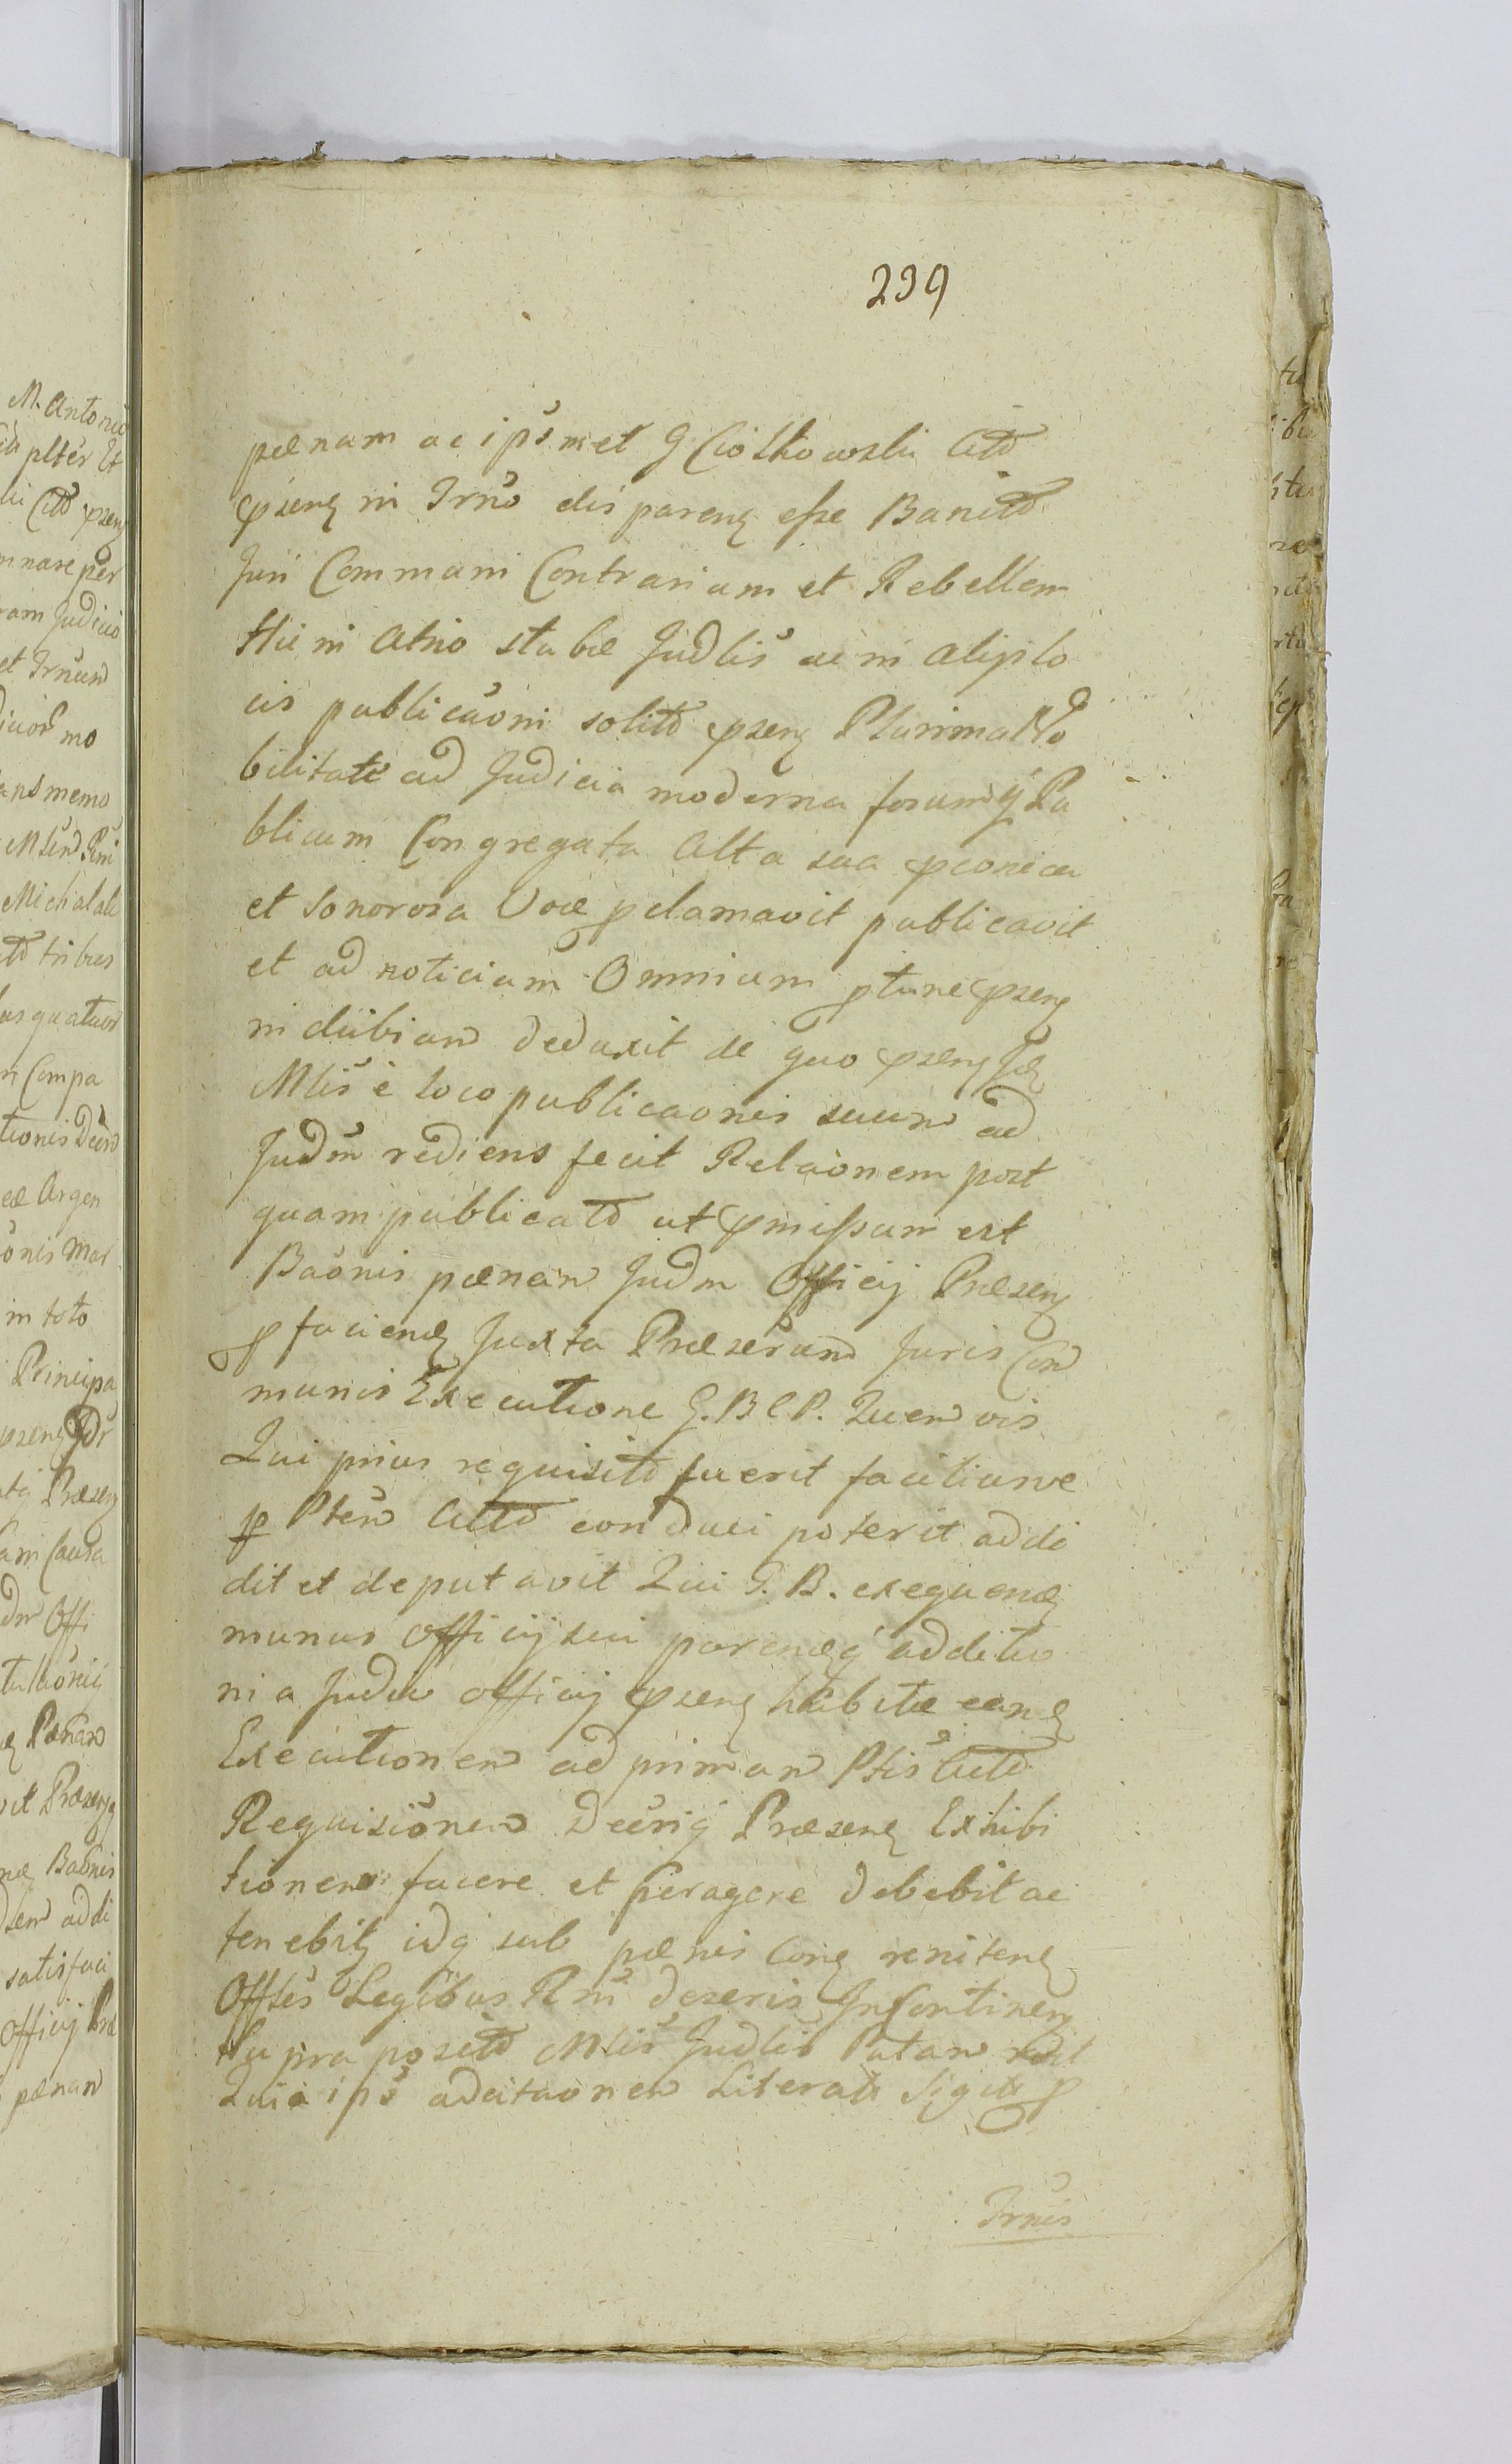 239
pœnam ac ipsmet G Ciołkowski Citt
pseng in Trno disparenq esse Banitt
Juri Communi Contrarium et Rebellem
Hic in Atrio stabæ Judlis ac in alijs lo
cis publicaoni solitt pseng Plurima No
bilitate ad Judicia moderna forumq Pu
blicum Congregata Alta sua pconica
et Sonorosa Voce pclamavit publicavit
et ad noticiam Omnium ptunc pseng
indubiam deduxit de quo pseng
Mlis è loco publicaonis suum ad
Judm rediens fecit Relaonem post
quam publicatt ut pmissum est
Baonis pœnam Judm Officij Præseng
p facienq Juxta Præsertum Juris Com
munis Executione G. B C P. Quemvis
Qui prius requisitt fuerit faciliusve
p Ptem Citt conduci poterit addi
dit et deputavit Qui G. B. exequenq
munus officij sui parenq additio
ni a Judo officij pseng habitæ eanq
Executionem ad primam Ptis Citt
Requisionem Decriq Præseng Exhibi
tionem facere et peragere debebit ac
tenebitq idq sub pœnis conq renitenq
Offles Legibus Rni deseris In Continenq
Supra positt Mlis Judlis Putan
Quia ips adcitaonem Literat p
Trnis

M. Antonio
plter Et
Citt pseng
nnare per
ram Judicio
et Trnum
mo
ans memo
Michalski
tt tribus
us quatuor
n Compa
tionis Decre
Argen
onis Mar
in toto
Principa
pseng Jdr
Præseng
Causa
dm Offi
Pœnam
Baonis
addi
satisfaci
officij Præ
pœnam